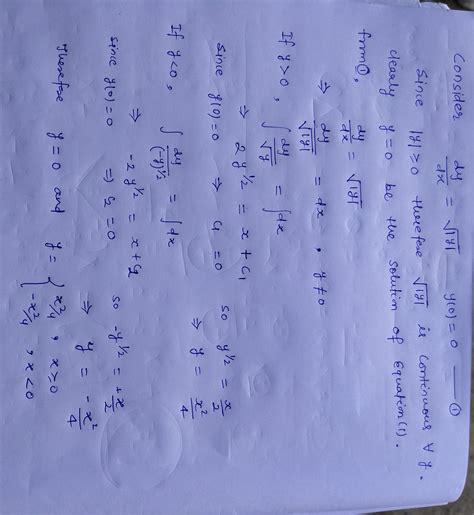 Consider dy/dx = √|y|   y(0) = 0 — ①
Since |y| ≥ 0 therefore √|y| is continuous ∀ y.
clearly y = 0 be the solution of Equation (1).
from ①, dy/dx = √|y|
⇒ dy/√|y| = dx , y ≠ 0
If y > 0, ∫ dy/√y = ∫ dx
⇒ 2 y^1/2 = x + C₁
Since y(0) = 0 ⇒ C₁ = 0   so y^1/2 = x/2
⇒ y = x²/4
If y < 0, ∫ dy/(-y)^1/2 = ∫ dx
⇒ -2 y^1/2 = x + C₂
since y(0) = 0 ⇒ C₂ = 0   so -y^1/2 = +x/2
⇒ y = -x²/4
Therefore y = 0 and y = { x²/4 , x ≥ 0
-x²/4 , x < 0